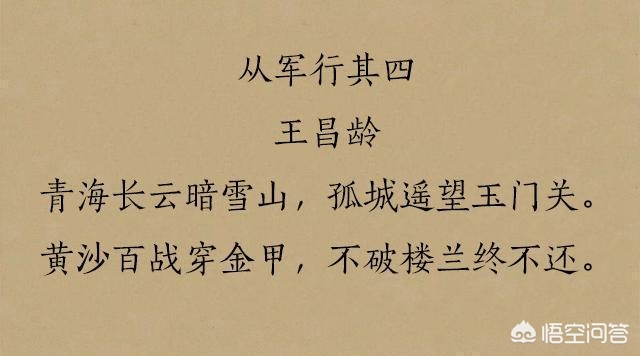 从军行其四
王昌龄
青海长云暗雪山，孤城遥望玉门关。
黄沙百战穿金甲，不破楼兰终不还。
悟空问答